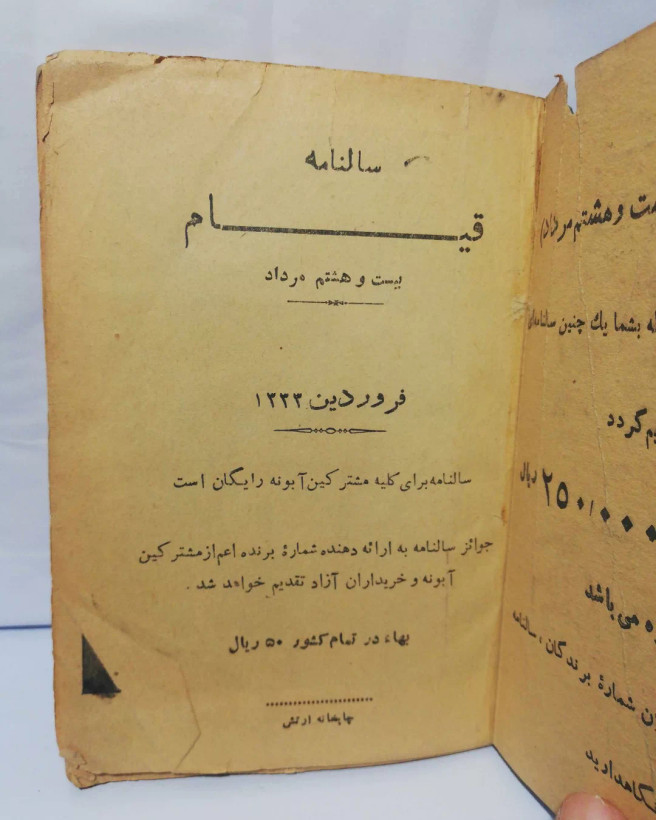 سالنامه
قیام
بیست و هشتم مرداد
فروردین ۱۳۳۳
سالنامه برای کلیه مشترکین آبونه رایگان است
جوائز سالنامه به ارائه دهنده شمارهٔ برنده اعم از مشترکین
آبونه و خریداران آزاد تقدیم خواهد شد.
بهاء در تمام کشور ۵۰ ریال
چاپخانه ارتش
و هشتم مرداد
بشما یك چنین
گردد
۲۵۰/۰۰۰ ریال
می باشد
شمارهٔ برندگان، سالنامه